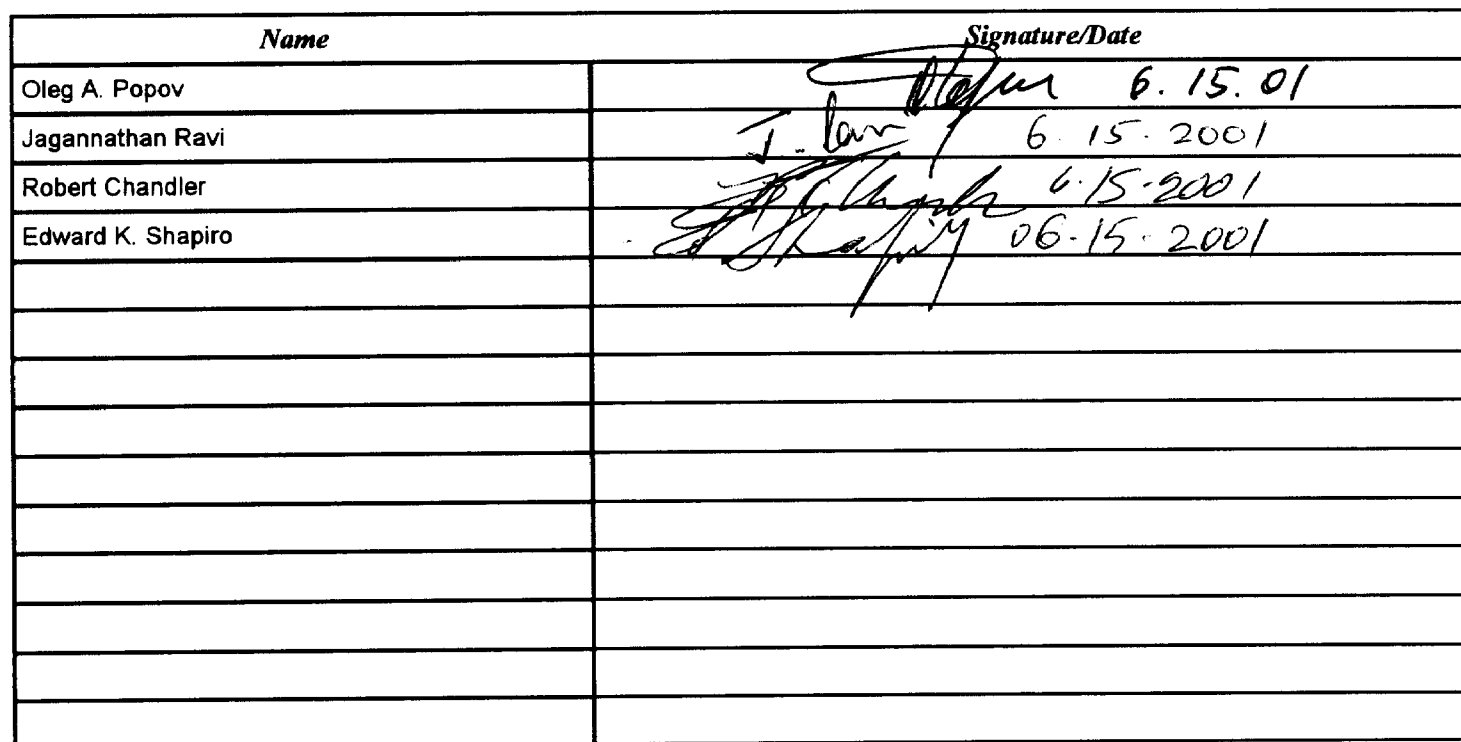 Name Signature/Date
Oleg A. Popov 6.15.01
Jagannathan Ravi J. Ravi 6.15.2001
Robert Chandler 6.15-2001
Edward K. Shapiro Shapiro 06.15.2001